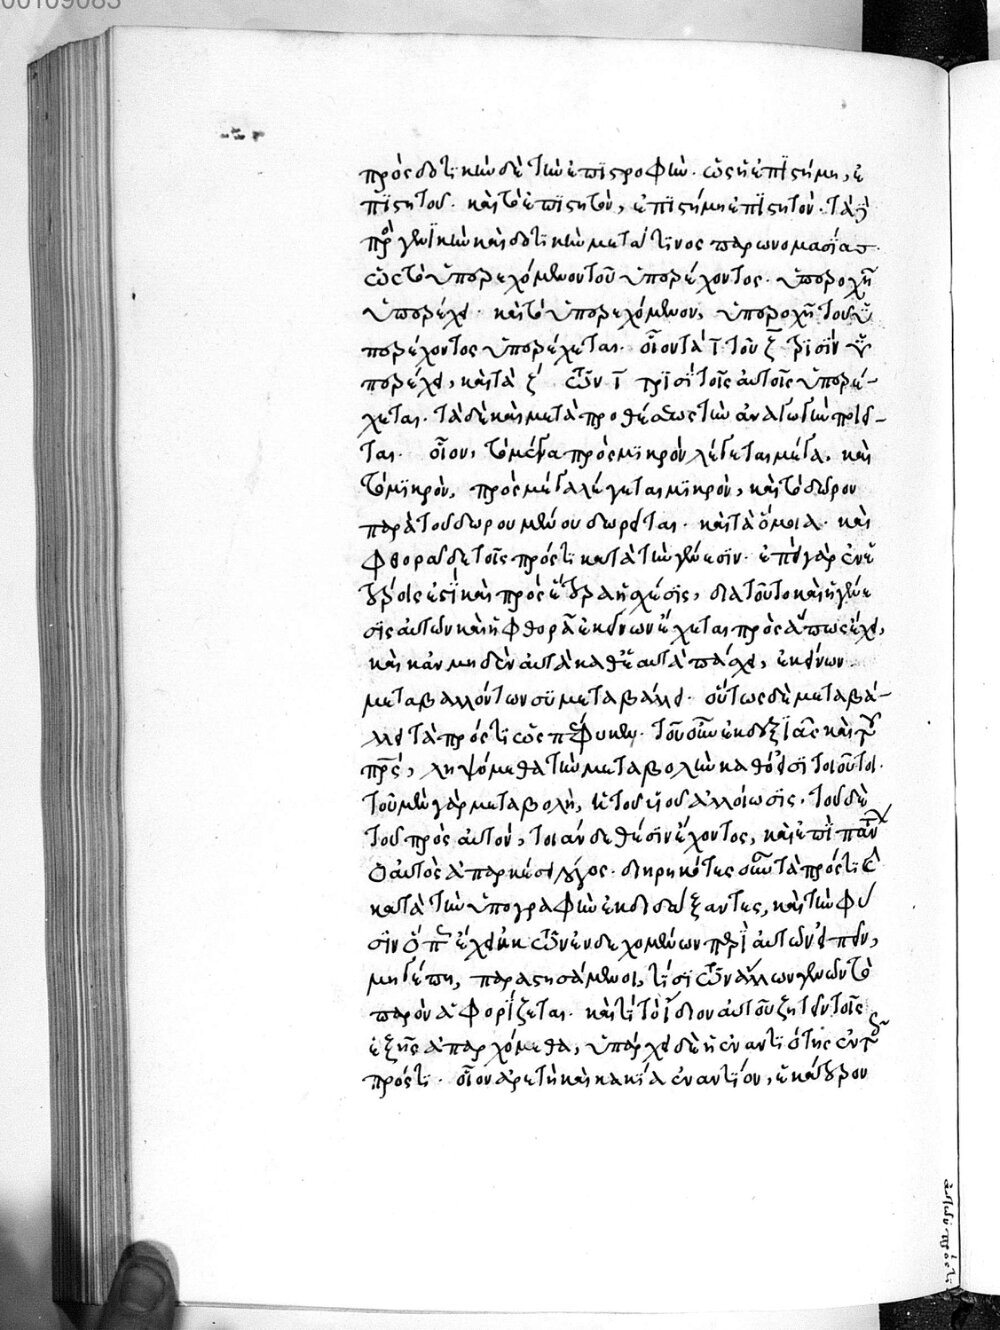 00109083
πρὸς δοτικὴν δὲ τὴν ἐπιστροφὴν. ὡς ἡ ἐπιστήμη, ἐ
πιστητοῦ. καὶ τὸ ἐπιστητὸν, ἐπιστήμη ἐπιστητὸν. τὰ δὲ
πρὸς γενικὴν καὶ δοτικὴν μετά τινος παρωνομασίας.
ὡς τὸ ὑπερεχόμενον τοῦ ὑπερέχοντος. ὑπεροχῆ
ὑπερέχει. καὶ τὸ ὑπερεχόμενον, ὑπεροχῆ τοῦ ὑ
περέχοντος ὑπερέχεται. οἷον τὰ ῑ τοῦ ξ τρισὶν ὑ
περέχει, καὶ τὰ ξ τῶν ῑ τρισὶ τοῖς αὐτοῖς ὑπερέ-
χεται. τὰ δὲ καὶ μετὰ προθέσεως τὴν ἀναγωγὴν ποιεῖ-
ται. οἷον, τὸ μέγα πρὸς μικρὸν λέγεται μέγα, καὶ
τὸ μικρὸν, πρὸς μέγα λέγεται μικρὸν, καὶ τὸ δῶρον
παρὰ τοῦ δωρουμένου δωρεῖται. καὶ τὰ ὅμοια. καὶ
φθορὰ δὲ τοῖς πρός τι κατὰ τὴν γένεσιν. ἐπεὶ γὰρ ἐν ἑ
τέροις ἐστὶ καὶ πρὸς ἕτερα ἡ σχέσις, διὰ τοῦτο καὶ ἡ γένε
σις αὐτῶν καὶ ἡ φθορὰ ἐκείνων ἔχεται πρὸς ἅ πως ἔχει,
καὶ κἂν μηδὲν αὐτὰ καθ' ἑαυτὰ πάσχει, ἐκείνων
μεταβαλλόντων συμεταβάλλει. οὕτως δὲ μεταβά-
λλει τὰ πρός τι ὡς πέφυκεν. τοῦ οὖν ἐκ δεξιᾶς καὶ τοῦ
πρός, ληψόμεθα τὴν μεταβολὴν καθό εἰσι τοιοῦτοι.
τοῦ μὲν γὰρ μεταβολὴ, ἢ τοῦ εἴδους ἀλλοίωσις. τοῦ δὲ
τοῦ πρὸς αὐτὸν, τοιάνδε θέσιν ἔχοντος, καὶ ἐπὶ πάντων
ὁ αὐτὸς ἀπαρκέσει λόγος. διῃρηκότες οὖν τὰ πρός τι καὶ
κατὰ τὴν ὑπογραφὴν ἐκδιδάξαντες, καὶ τὴν φύ
σιν ὅπως ἔχει ἐκ τῶν ἐνδεχομένων περὶ αὐτῶν εἰπεῖν,
μηδέπη, παραστησάμενοι, τίσι τῶν ἄλλων γενῶν τὸ
παρὸν ἀφορίζεται. καὶ τί τὸ ἴδιον αὐτοῦ ζητεῖν τοῖς
ἑξῆς ἀπαρχόμεθα, ὑπάρχει δὲ ἡ ἐναντιότης ἐν τοῖς
πρός τι. οἷον ἀρετὴ καὶ κακία ἐναντίον, ἑκάτερον